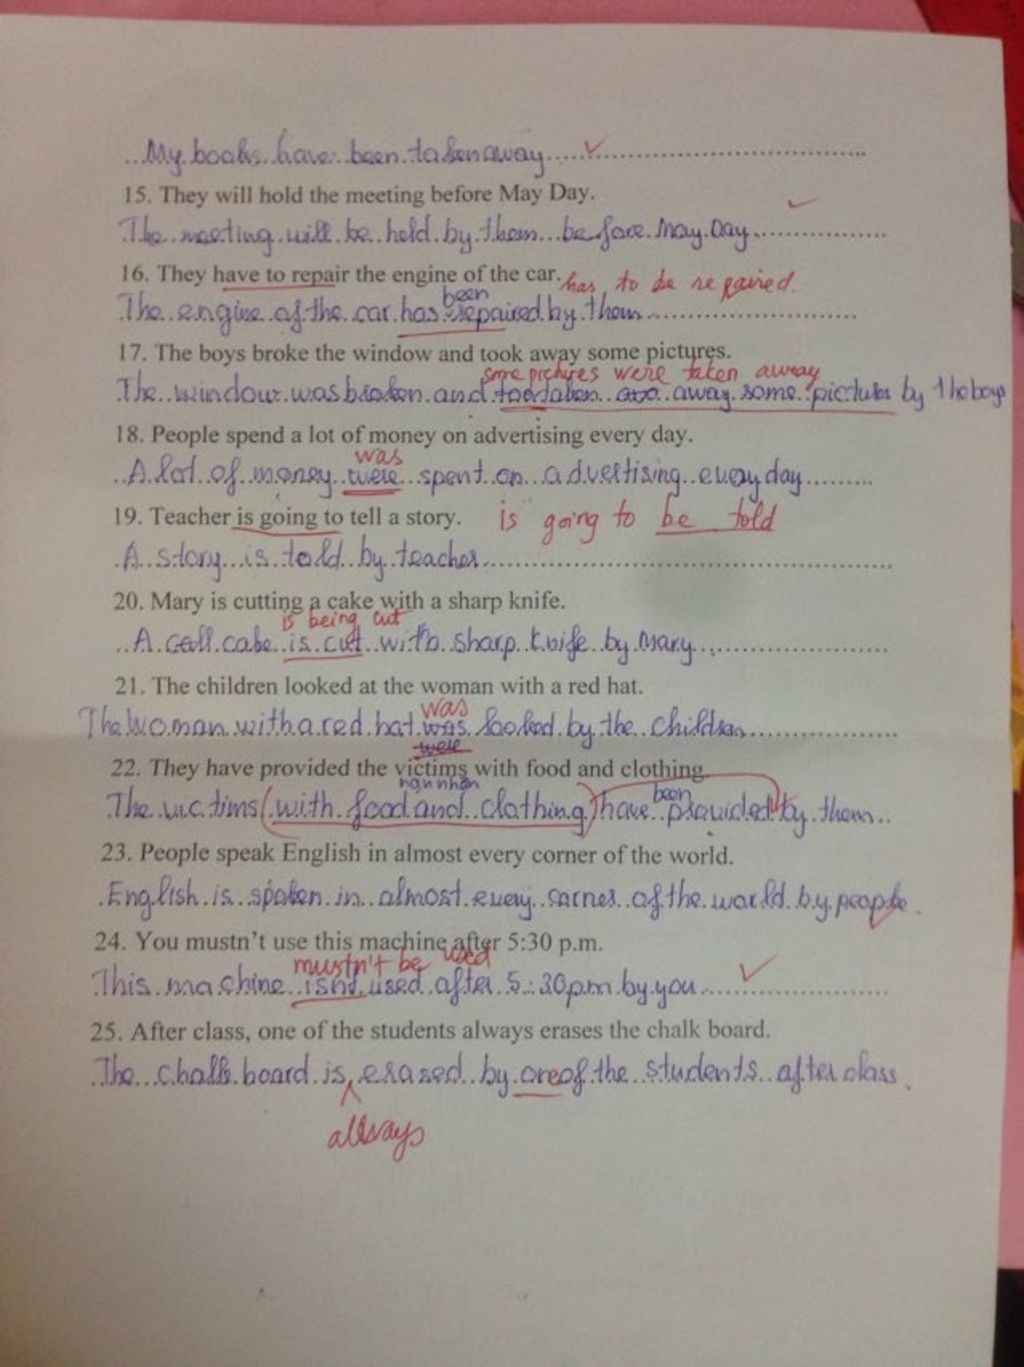 My books have been taken away
15. They will hold the meeting before May Day.
The meeting will be held by them before May Day
16. They have to repair the engine of the car. has to be repaired.
been
The engine of the car has repaired by them
17. The boys broke the window and took away some pictures.
some pictures were taken away
The window was broken and taken away some pictures by the boys
18. People spend a lot of money on advertising every day.
was
A lot of money were spent on advertising every day
19. Teacher is going to tell a story. is going to be told
A story is told by teacher
20. Mary is cutting a cake with a sharp knife.
is being cut
A cake is cut with sharp knife by Mary
21. The children looked at the woman with a red hat.
was
The woman with a red hat was looked by the children
were
22. They have provided the victims with food and clothing.
nạn nhân
been
The victims (with food and clothing) have provided by them
23. People speak English in almost every corner of the world.
English is spoken in almost every corner of the world by people.
24. You mustn't use this machine after 5:30 p.m.
mustn't be used
This machine isn't used after 5:30pm by you
25. After class, one of the students always erases the chalk board.
The chalk board is erased by one of the students after class.
always